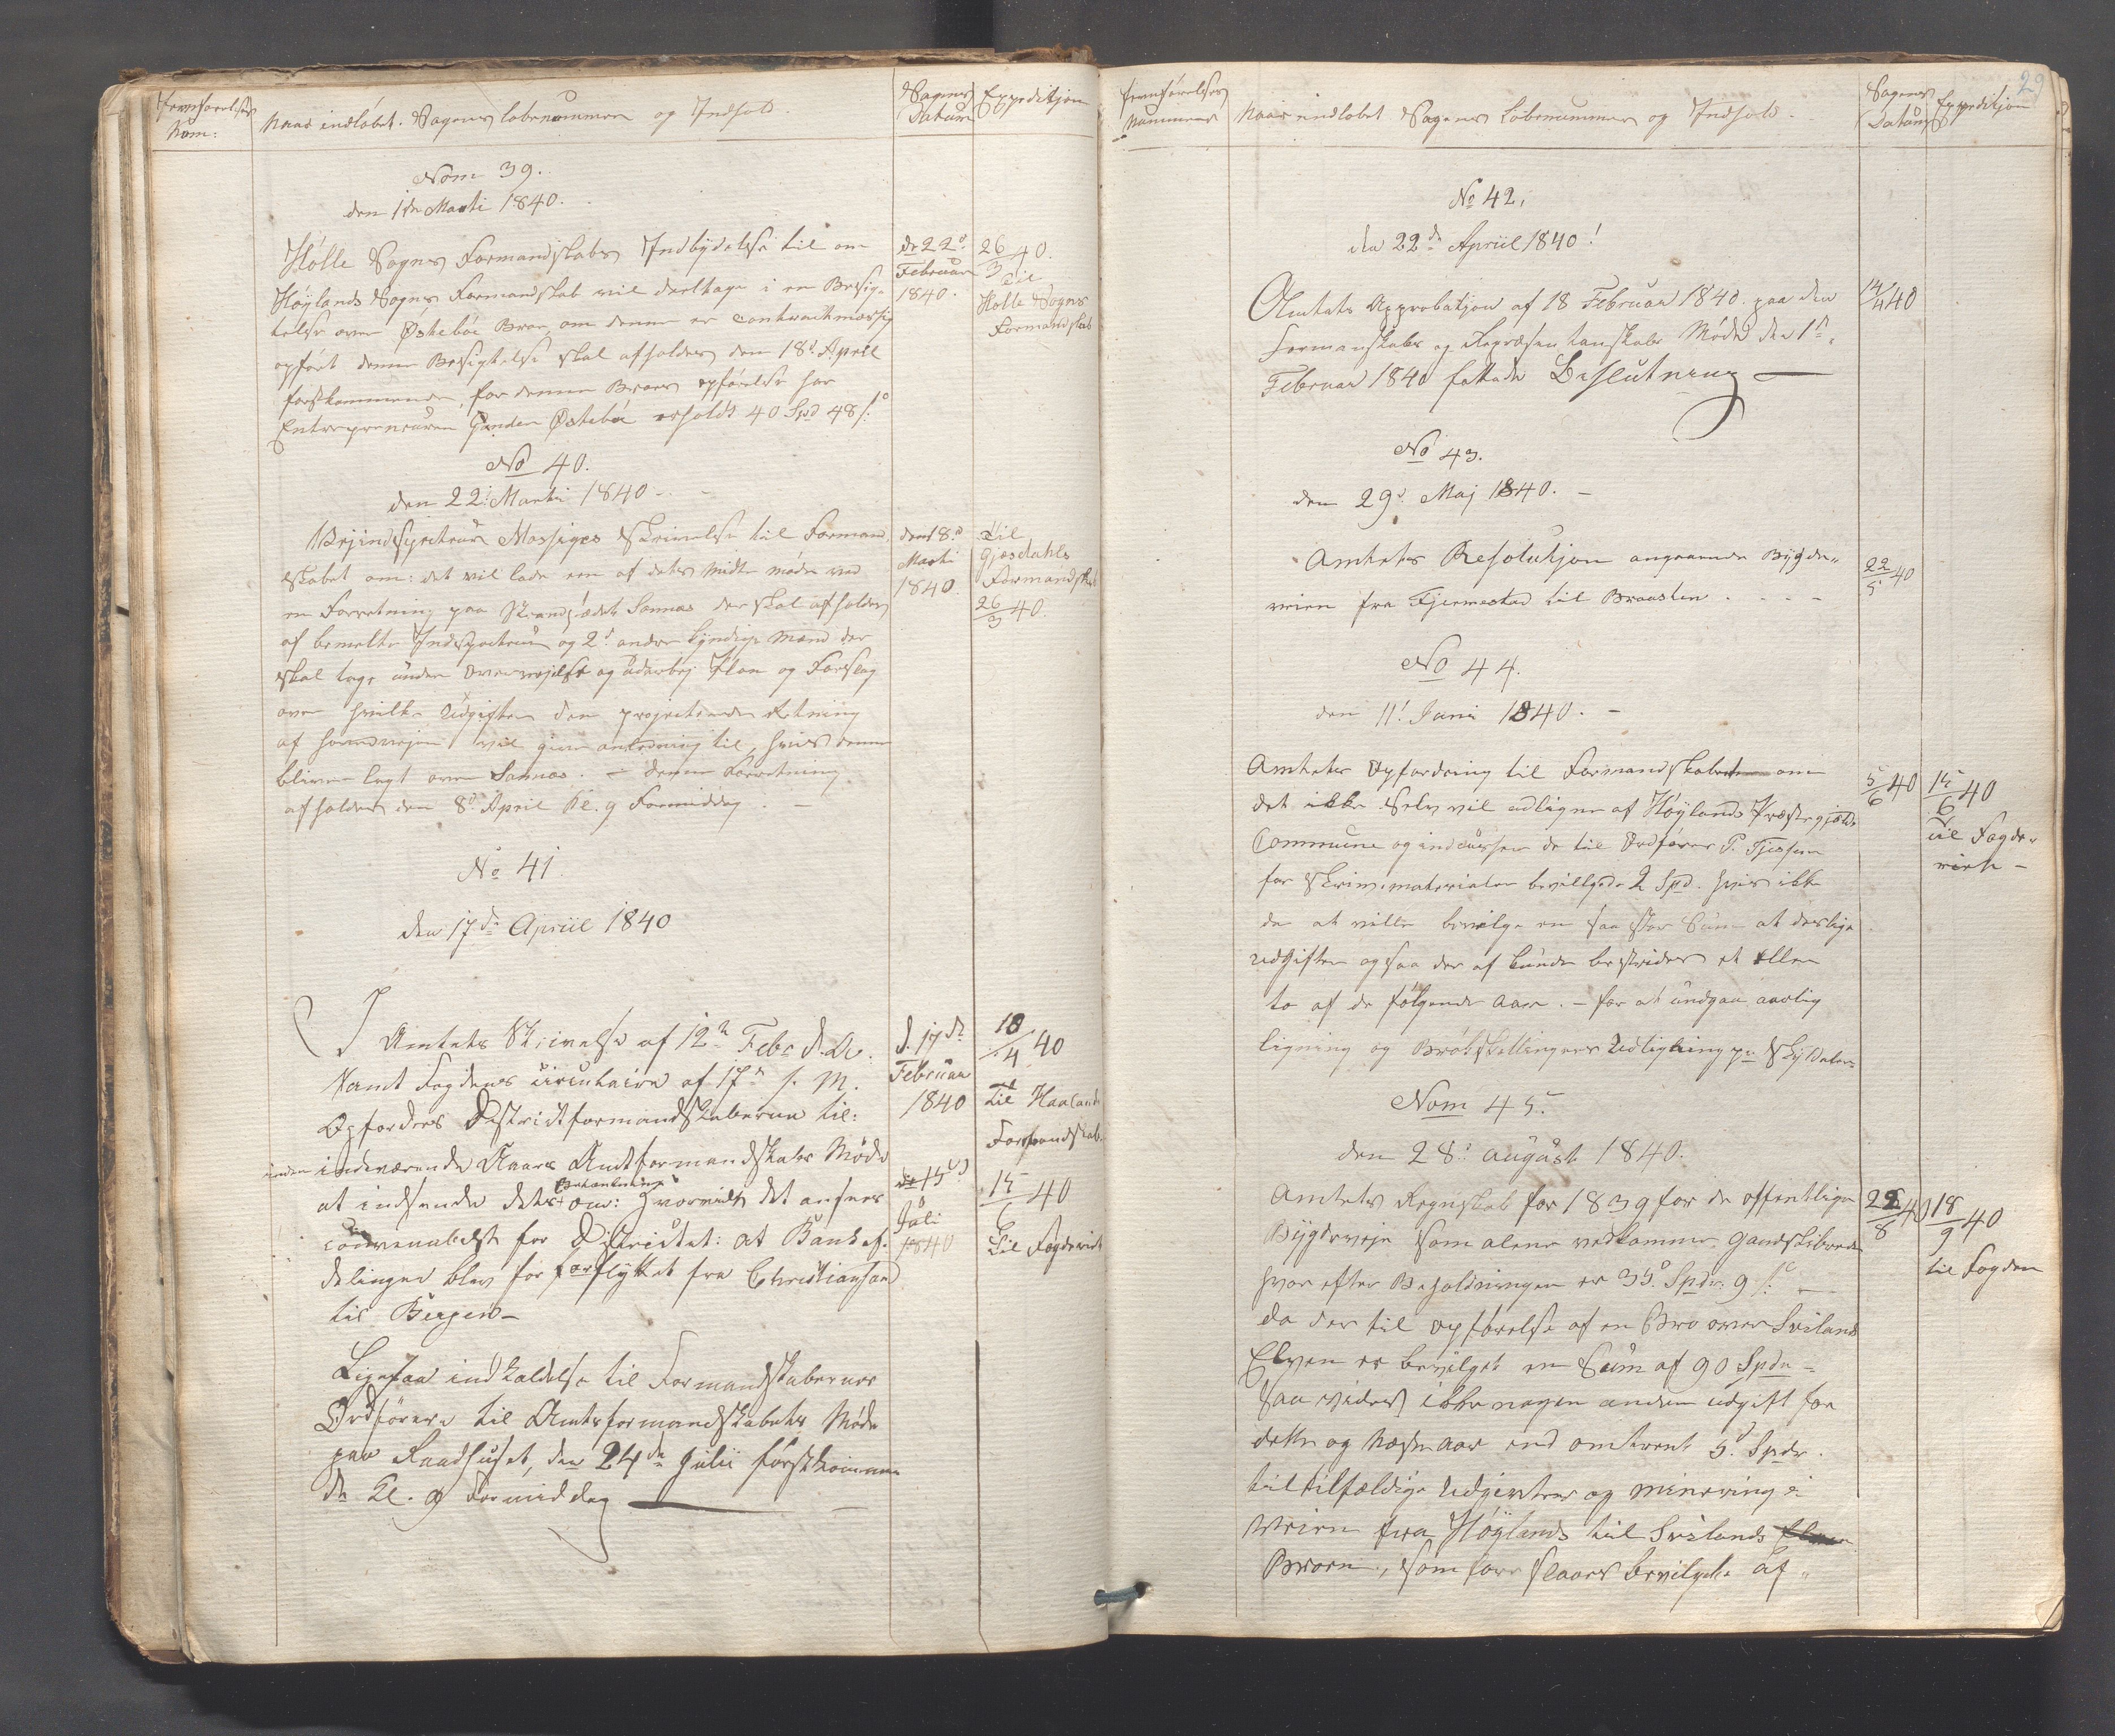 Fremførelses
Num:
Naar indløbet. Sagens løbenummer og Indhold
Sagens
Datum
Expeditjon
Nom 39.
den 1ste Marti 1840.
Hølle Sogns Formandskabs Indbÿdelse til om
Høÿlands Sogns Formandskab vil deeltage i en Besig-
telse over Østebøe Broe, om denne er contractmæssig
opført denne Besigtelse skal afholdes den 18d April
førstkommende, for denne Broes opførelse har
Entreprenøren Gunder Østebøe erholdt 40 Spd 48 s.
de 22d
Februar
1840.
26/3 40.
Til
Hølle Sogns
Formandskab
No 40.
den 22d Martii 1840 -
Veiinspecteur Mossiges Skrivelse til Formand-
skabet om: det vil lade een af dets Midte møde ved
en Forretning paa Strandstædet Sannæs der skal afholdes
af bemelte Indspecteur og 2d andre kÿndige Mænd der
skal tage under overvejelse og udarbej Plan og Forslag
over hvilke Udgifter den projecterede Retning
af Hovedvejen vil give anledning til, hvis denne
bliver lagt over Sannæs. - denne Forretning
afholdes den 8d April Kl. 9 Formiddag. -
den 18d
Marti
1840
Til
Gjesdahls
Formandskab
26/3 40.
No 41.
den 17de Apriil 1840
I Amtets Skrivelse af 12te Febr d. A.
samt Fogdens Circulaire af 17de s. M.
Opfordres Districtformandskaberne til:
inden indeværende Aars Amtformandskabs Møde
at indsende dets Betænkning om: hvorvidt det ansees
convenabelst for Districtet: at Bankaf-
delingen blev for forflÿttet fra Christiansand
til Bergen -
d. 17de
Februar
1840
18/4 40
Til Haalands
Formandskab.
Ligesaa indkaldelse til Formandskabernes
Ordførere til Amtsformandskabets Møde
paa Raadhuset, den 24de Julii førstkommen-
de Kl. 9 Formiddag
de 15d
Juli
1840
15/6 40
Til Fogderiet
29
Fremførelses
Nummer
Naar indløbet Sagens Løbenummer og Indhold.
Sagens
Datum
Expeditjon
No 42.
den 22de Apriil 1840!
Amtets Approbatjon af 18 Februar 1840. paa den
Formanskabs og Repræsentanskabs Møde den 1ste
Februar 1840 fattede Beslutning
14/4 40
No 43.
den 29d Maj 1840. -
Amtets Resolutjon angaaende Bÿgde-
veien fra Fjermestad til Braasten . . . -
22/5 40
No 44.
den 11t Juni 1840. -
Amtets Opfordring til Formandskabet om
det ikke selv vil udligne af Høÿlands Præstegjælds
Commune og indcassere de til Ordfører P. Tjessem
for Skrivematerialer bevilgede 2 Spd. hvis ikke
da at ville bevilge en saa stor Sum at deslige
udgifter ogsaa der af kunde bestrides et eller
to af de følgende Aar. - for at undgaa aarlig
ligning og Brøkskillingers Udligning pr Skÿlddaler
5/6 40
15/6 40
til Fogde-
riet -
Nom 45.
den 28d august 1840.
Amtets Regnskab for 1839 for de offentlige
Bÿgdeveje som alene vedkommer, Gandskibrede
hvor efter Beholdningen er 35d Spdr. 9 s. -
da der til opførelse af en Bro over Sviland
Elven er bevilget en Sum af 90 Spdr -
saa vides ikke nogen anden udgift for
dette og næste aar end omtrent 5d Spdr.
til tilfældige udgivter og minering i
Veien fra Høÿlands til Svilands
Broen, som foreslaaes bevilgede af -
22/8 40
18/9 40
til Fogden